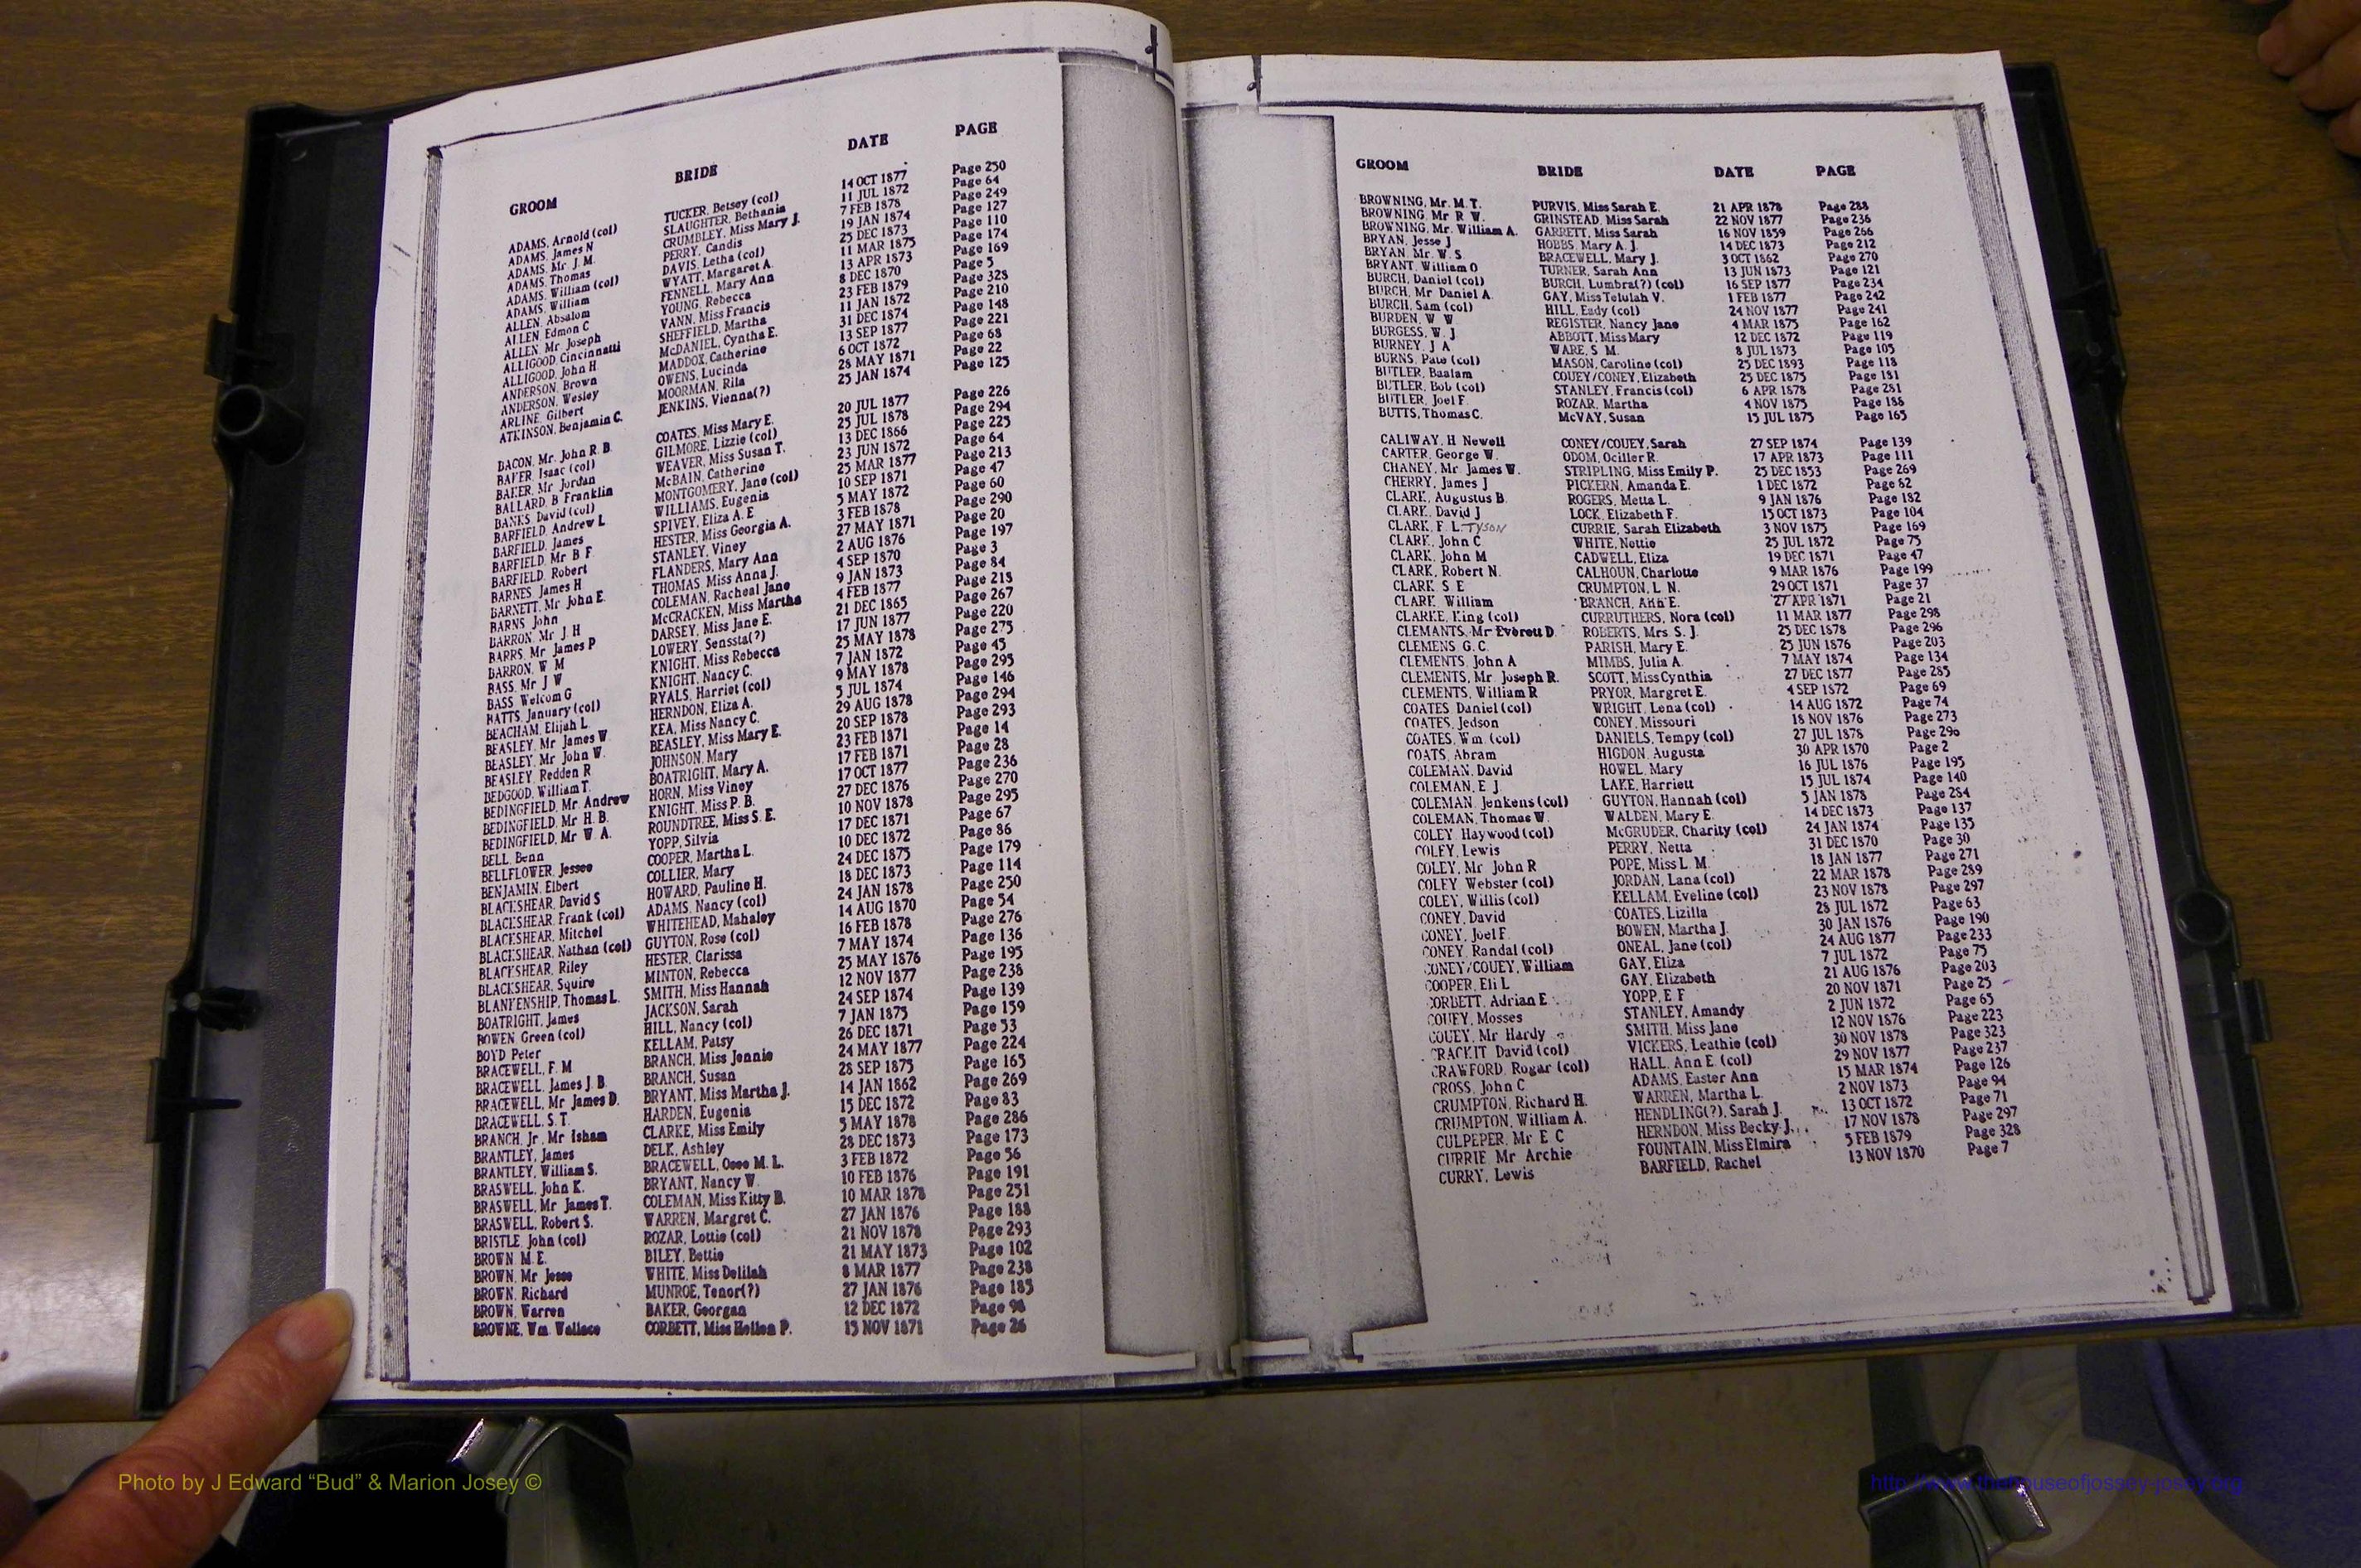 GROOM BRIDE DATE PAGE
ADAMS, Arnold (col) TUCKER, Betsey (col) 14 OCT 1877 Page 250
ADAMS, James N SLAUGHTER, Bethania 11 JUL 1872 Page 64
ADAMS, Mr. J. M. CRUMBLEY, Miss Mary J. 7 FEB 1878 Page 249
ADAMS, Thomas PERRY, Candis 19 JAN 1874 Page 127
ADAMS, William (col) DAVIS, Letha (col) 25 DEC 1873 Page 110
ADAMS, William WYATT, Margaret A. 11 MAR 1875 Page 174
ALLEN, Absalom FENNELL, Mary Ann 13 APR 1873 Page 169
ALLEN, Edmon C YOUNG, Rebecca 8 DEC 1870 Page 5
ALLEN, Mr. Joseph VANN, Miss Francis 23 FEB 1879 Page 328
ALLIGOOD, Cincinnatti SHEFFIELD, Martha 11 JAN 1872 Page 210
ALLIGOOD, John H. McDANIEL, Cyntha E. 31 DEC 1874 Page 148
ANDERSON, Brown MADDOX, Catherine 13 SEP 1877 Page 221
ANDERSON, Wesley OWENS, Lucinda 6 OCT 1872 Page 68
ARLINE, Gilbert MOORMAN, Rila 28 MAY 1871 Page 22
ATKINSON, Benjamin C. JENKINS, Vienna(?) 25 JAN 1874 Page 125
BACON, Mr. John R. B. COATES, Miss Mary E. 20 JUL 1877 Page 226
BAKER, Isaac (col) GILMORE, Lizzie (col) 25 JUL 1878 Page 294
BAKER, Mr Jordan WEAVER, Miss Susan T. 13 DEC 1866 Page 225
BALLARD, B Franklin McBAIN, Catherine 23 JUN 1872 Page 64
BANKS, David (col) MONTGOMERY, Jane (col) 25 MAR 1877 Page 213
BARFIELD, Andrew L WILLIAMS, Eugenia 10 SEP 1871 Page 47
BARFIELD, James SPIVEY, Eliza A. E 5 MAY 1872 Page 60
BARFIELD, Mr B F HESTER, Miss Georgia A. 3 FEB 1878 Page 290
BARFIELD, Robert STANLEY, Viney 27 MAY 1871 Page 20
BARNES, James H FLANDERS, Mary Ann 2 AUG 1876 Page 197
BARNETT, Mr John E. THOMAS, Miss Anna J. 4 SEP 1870 Page 3
BARNS, John COLEMAN, Racheal Jane 9 JAN 1873 Page 84
BARRON, Mr J H McCRACKEN, Miss Martha 4 FEB 1877 Page 218
BARRS, Mr James P DARSEY, Miss Jane E. 21 DEC 1865 Page 267
BARRON, W M LOWERY, Senssta(?) 17 JUN 1877 Page 220
BASS, Mr J W KNIGHT, Miss Rebecca 25 MAY 1878 Page 275
BASS Welcom G KNIGHT, Nancy C. 7 JAN 1872 Page 45
BATTS, January (col) RYALS, Harriet (col) 9 MAY 1878 Page 295
BEACHAM, Elijah L. HERNDON, Eliza A. 5 JUL 1874 Page 146
BEASLEY, Mr James W KEA, Miss Nancy C. 29 AUG 1878 Page 294
BEASLEY, Mr John W. BEASLEY, Miss Mary E. 20 SEP 1878 Page 293
BEASLEY, Redden R JOHNSON, Mary 23 FEB 1871 Page 14
BEDGOOD, William T. BOATRIGHT, Mary A. 17 FEB 1871 Page 28
BEDINGFIELD, Mr. Andrew HORN, Miss Viney 17 OCT 1877 Page 236
BEDINGFIELD, Mr H. B. KNIGHT, Miss P. B. 27 DEC 1876 Page 270
BEDINGFIELD, Mr W. A. ROUNDTREE, Miss S. E. 10 NOV 1878 Page 295
BELL, Benn YOPP, Silvia 17 DEC 1871 Page 67
BELLFLOWER, Jessee COOPER, Martha L. 10 DEC 1872 Page 86
BENJAMIN, Elbert COLLIER, Mary 24 DEC 1875 Page 179
BLACKSHEAR, David S HOWARD, Pauline H. 18 DEC 1873 Page 114
BLACKSHEAR, Frank (col) ADAMS, Nancy (col) 24 JAN 1878 Page 250
BLACKSHEAR, Mitchel WHITEHEAD, Mahaley 14 AUG 1870 Page 54
BLACKSHEAR, Nathan (col) GUYTON, Rose (col) 16 FEB 1878 Page 276
BLACKSHEAR, Riley HESTER, Clarissa 7 MAY 1874 Page 136
BLACKSHEAR, Squire MINTON, Rebecca 25 MAY 1876 Page 195
BLANKENSHIP, Thomas L. SMITH, Miss Hannah 12 NOV 1877 Page 238
BOATRIGHT, James JACKSON, Sarah 24 SEP 1874 Page 139
BOWEN, Green (col) HILL, Nancy (col) 7 JAN 1875 Page 159
BOYD Peter KELLAM, Patsy 26 DEC 1871 Page 53
BRACEWELL, F. M BRANCH, Miss Jennie 24 MAY 1877 Page 224
BRACEWELL, James J. B. BRANCH, Susan 28 SEP 1875 Page 165
BRACEWELL, Mr James D. BRYANT, Miss Martha J. 14 JAN 1862 Page 269
BRACEWELL, S. T. HARDEN, Eugenia 15 DEC 1872 Page 83
BRANCH, Jr, Mr Isham CLARKE, Miss Emily 5 MAY 1878 Page 286
BRANTLEY, James DELK, Ashley 28 DEC 1873 Page 173
BRANTLEY, William S. BRACEWELL, Osee M. L. 3 FEB 1872 Page 56
BRASWELL, John K. BRYANT, Nancy W. 10 FEB 1876 Page 191
BRASWELL, Mr James T. COLEMAN, Miss Kitty B. 10 MAR 1878 Page 251
BRASWELL, Robert S. WARREN, Margret C. 27 JAN 1876 Page 188
BRISTLE, John (col) ROZAR, Lottie (col) 21 NOV 1878 Page 293
BROWN, M. E. BILEY, Bettie 21 MAY 1873 Page 102
BROWN, Mr Jesse WHITE, Miss Delilah 8 MAR 1877 Page 238
BROWN, Richard MUNROE, Tenor(?) 27 JAN 1876 Page 185
BROWN, Warren BAKER, Georgan 12 DEC 1872 Page 98
BROWNE, Wm Wallace CORBETT, Miss Hellen P. 15 NOV 1871 Page 26
GROOM BRIDE DATE PAGE
BROWNING, Mr. M. T. PURVIS, Miss Sarah E. 21 APR 1878 Page 288
BROWNING, Mr R W. GRINSTEAD, Miss Sarah 22 NOV 1877 Page 236
BROWNING, Mr. William A. GARRETT, Miss Sarah 16 NOV 1859 Page 266
BRYAN, Jesse J HOBBS, Mary A. J. 14 DEC 1873 Page 212
BRYAN, Mr. W. S. BRACEWELL, Mary J. 3 OCT 1862 Page 270
BRYANT, William O TURNER, Sarah Ann 13 JUN 1873 Page 121
BURCH, Daniel (col) BURCH, Lumbra(?) (col) 16 SEP 1877 Page 234
BURCH, Mr Daniel A. GAY, Miss Telulah V. 1 FEB 1877 Page 242
BURCH, Sam (col) HILL, Eady (col) 24 NOV 1877 Page 241
BURDEN, W W REGISTER, Nancy Jane 4 MAR 1875 Page 162
BURGESS, W. J. ABBOTT, Miss Mary 12 DEC 1872 Page 119
BURNEY, J A WARE, S M. 8 JUL 1873 Page 105
BURNS, Pate (col) MASON, Caroline (col) 25 DEC 1893 Page 118
BUTLER, Baalam COUEY/CONEY, Elizabeth 25 DEC 1875 Page 181
BUTLER, Bob (col) STANLEY, Francis (col) 6 APR 1878 Page 281
BUTLER, Joel F. ROZAR, Martha 4 NOV 1875 Page 188
BUTTS, Thomas C. McVAY, Susan 15 JUL 1875 Page 165
CALIWAY, H Newell CONEY/COUEY, Sarah 27 SEP 1874 Page 139
CARTER, George W. ODOM, Ociller R. 17 APR 1873 Page 111
CHANEY, Mr. James W. STRIPLING, Miss Emily P. 25 DEC 1853 Page 269
CHERRY, James J PICKERN, Amanda E. 1 DEC 1872 Page 82
CLARK, Augustus B. ROGERS, Metta L. 9 JAN 1876 Page 182
CLARK, David J LOCK, Elizabeth F. 15 OCT 1873 Page 104
CLARK, F. L. TYSON CURRIE, Sarah Elizabeth 3 NOV 1875 Page 169
CLARK, John C WHITE, Nettie 25 JUL 1872 Page 75
CLARK, John M CADWELL, Eliza 19 DEC 1871 Page 47
CLARK, Robert N. CALHOUN, Charlotte 9 MAR 1876 Page 199
CLARK, S E CRUMPTON, L N. 29 OCT 1871 Page 37
CLARK, William BRANCH, Ann E. 27 APR 1871 Page 21
CLARKE, King (col) CURRUTHERS, Nora (col) 11 MAR 1877 Page 298
CLEMANTS, Mr Everett D. ROBERTS, Mrs S. J. 25 DEC 1878 Page 296
CLEMENS, G. C. PARISH, Mary E. 25 JUN 1876 Page 203
CLEMENTS, John A MIMBS, Julia A. 7 MAY 1874 Page 134
CLEMENTS, Mr. Joseph R. SCOTT, Miss Cynthia 27 DEC 1877 Page 285
CLEMENTS, William R PRYOR, Margret E. 4 SEP 1872 Page 69
COATES, Daniel (col) WRIGHT, Lena (col) 14 AUG 1872 Page 74
COATES, Jedson CONEY, Missouri 18 NOV 1876 Page 273
COATES, Wm. (col) DANIELS, Tempy (col) 27 JUL 1878 Page 296
COATS, Abram HIGDON, Augusta 30 APR 1870 Page 2
COLEMAN, David HOWEL, Mary 16 JUL 1876 Page 195
COLEMAN, E J. LAKE, Harriett 15 JUL 1874 Page 140
COLEMAN, Jenkens (col) GUYTON, Hannah (col) 5 JAN 1878 Page 284
COLEMAN, Thomas W. WALDEN, Mary E. 14 DEC 1873 Page 137
COLEY, Haywood (col) McGRUDER, Charity (col) 24 JAN 1874 Page 135
COLEY, Lewis PERRY, Netta 31 DEC 1870 Page 30
COLEY, Mr John R POPE, Miss L. M. 18 JAN 1877 Page 271
COLEY, Webster (col) JORDAN, Lana (col) 22 MAR 1878 Page 289
COLEY, Willis (col) KELLAM, Eveline (col) 23 NOV 1878 Page 297
CONEY, David COATES, Lizilla 28 JUL 1872 Page 63
CONEY, Joel F. BOWEN, Martha J. 30 JAN 1876 Page 190
CONEY, Randal (col) ONEAL, Jane (col) 24 AUG 1877 Page 233
CONEY/COUEY, William GAY, Eliza 7 JUL 1872 Page 75
COOPER, Eli L GAY, Elizabeth 21 AUG 1876 Page 203
CORBETT, Adrian E YOPP, E F 20 NOV 1871 Page 25
COUEY, Mosses STANLEY, Amandy 2 JUN 1872 Page 65
COUEY, Mr Hardy SMITH, Miss Jane 12 NOV 1876 Page 223
CRACKIT David (col) VICKERS, Leathie (col) 30 NOV 1878 Page 323
CRAWFORD, Rogar (col) HALL, Ann E (col) 29 NOV 1877 Page 237
CROSS, John C ADAMS, Easter Ann 15 MAR 1874 Page 126
CRUMPTON, Richard H. WARREN, Martha L. 2 NOV 1873 Page 94
CRUMPTON, William A. HENDLING(?), Sarah J. 13 OCT 1872 Page 71
CULPEPER, Mr E C HERNDON, Miss Becky J. 17 NOV 1878 Page 297
CURRIE, Mr Archie FOUNTAIN, Miss Elmira 5 FEB 1879 Page 328
CURRY, Lewis BARFIELD, Rachel 13 NOV 1870 Page 7
Photo by J Edward “Bud” & Marion Josey ©
http://www.thehouseofjossey-josey.org